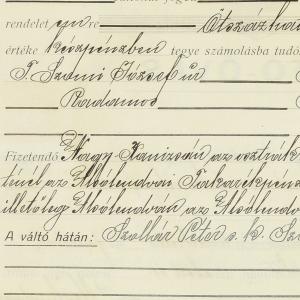 rendelet en re Ötszázha
értéke készpénzben tegye számolásba tudó
T. Szomi József úr
Radamos
Fizetendő Nagy-Kanizsán az osztrák
ténél az Alsólendvai Takarékpénz
illetőleg Alsólendván az Alsólendv
A váltó hátán: Szolhár Péter s. k. Sz